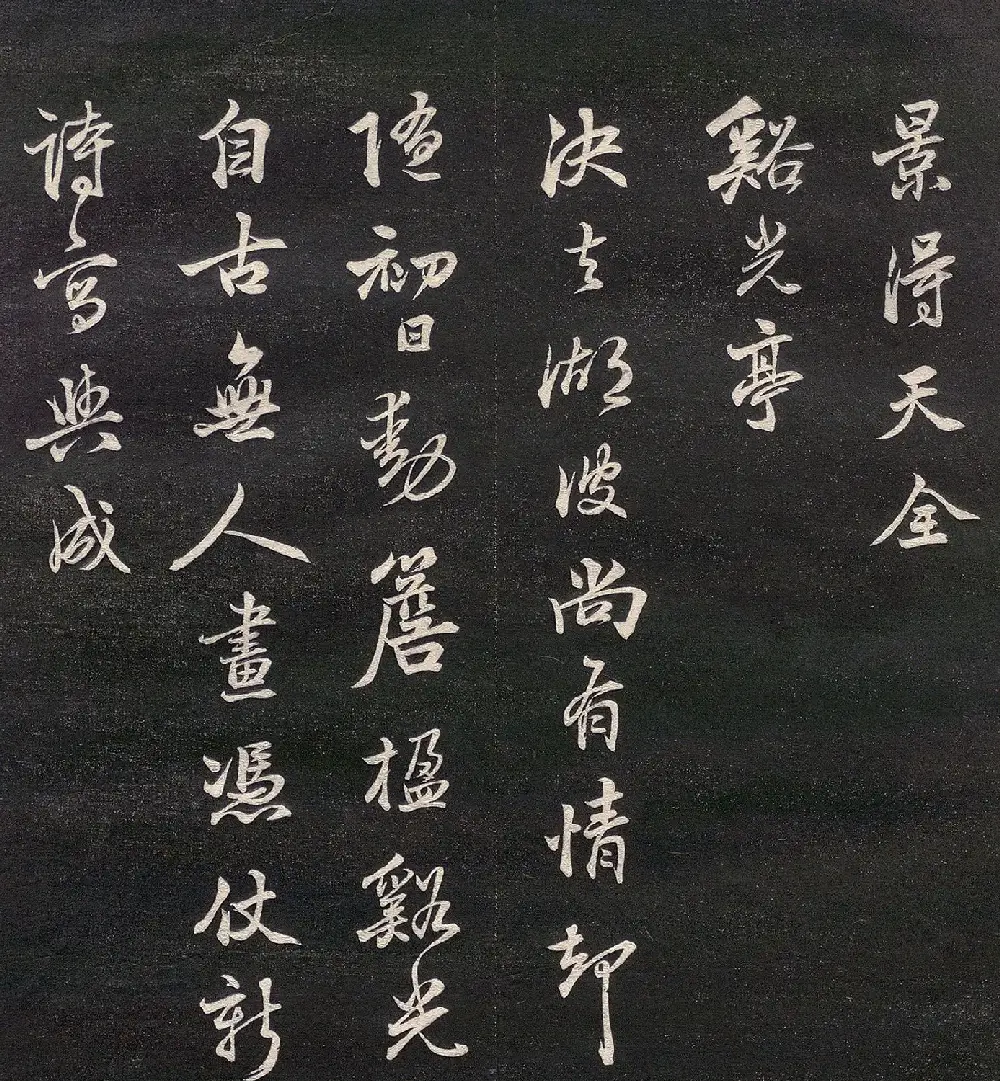 景得天全
谿光亭
決去湖波尚有情却
隨初日動簷楹谿光
自古無人畫憑仗新
詩寫與成